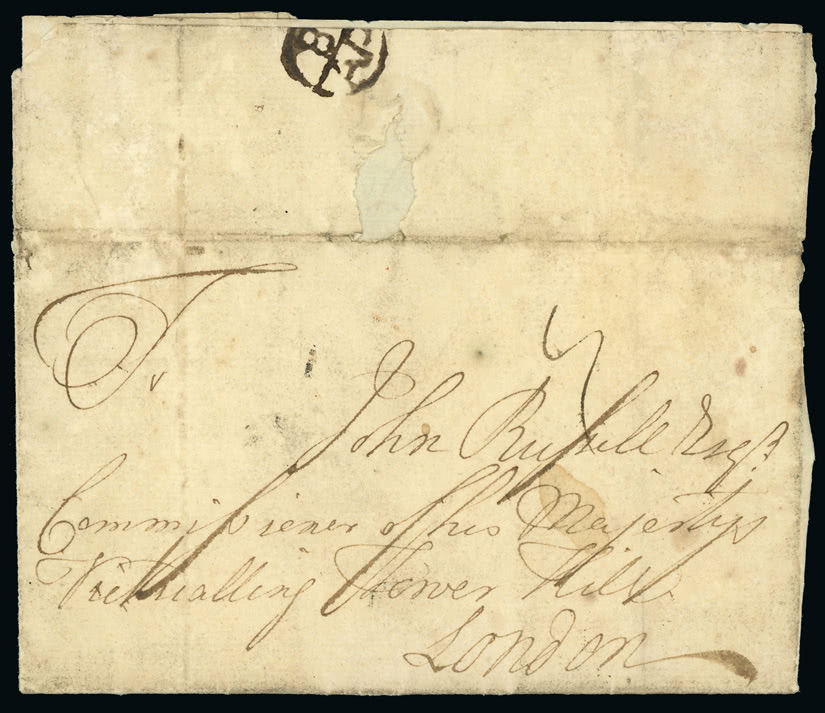 To
John Russell Esqr.
Commissioner of his Majestys
Victualling Tower Hill
London